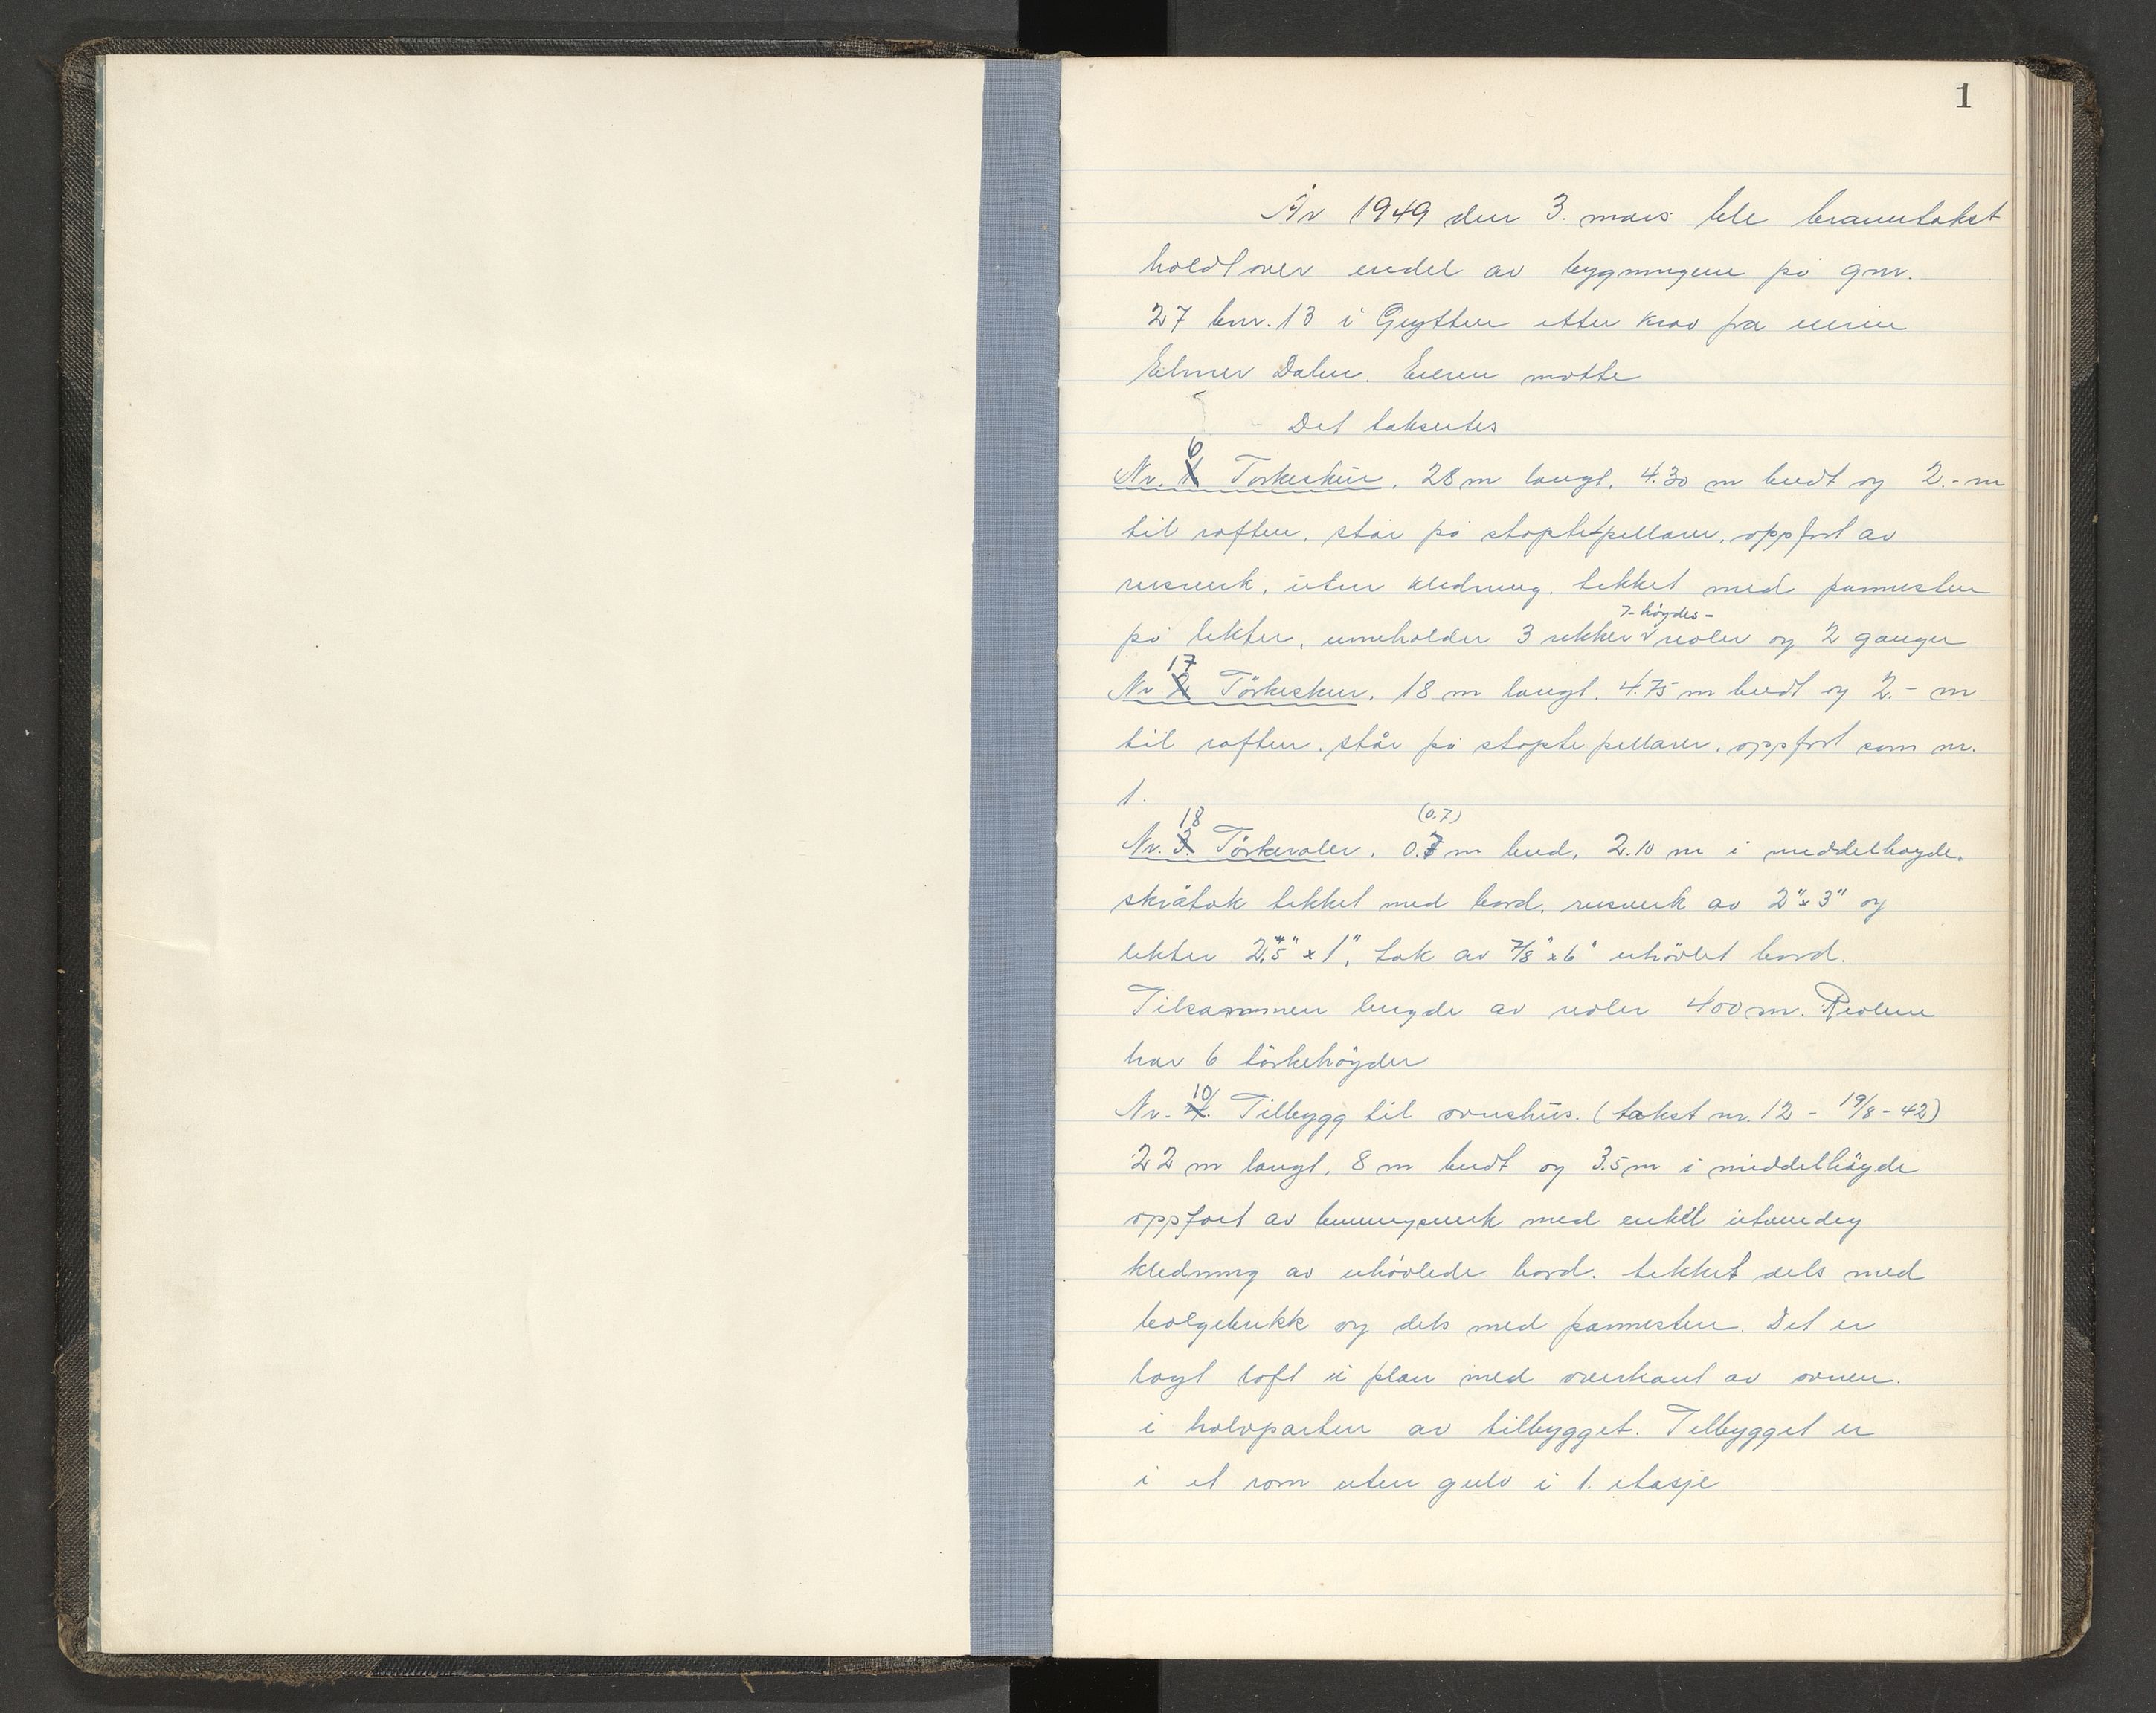 1
År 1949 den 3. mars ble branntakst
holdt over endel av bygningene på gnr.
27 bnr. 13 i Grytten etter krav fra eieren
Elmer Dalen. Eieren møtte
Det takseres
6
Nr. 1 Torkeskur, 28 m langt, 4.30 m bredt og 2.- m
til raften, står på stopte pellarer, oppfort av
reisverk, uten kledning. tekket med pannesten
7-höydes-
på lekter, inneholder 3 rekker reoler og 2 ganger
17
Nr 2 Törkeskur, 18 m langt. 4.75 m bredt og 2.- m
til raften. står på stopte pellarer, oppfort som nr.
1.
18 (0.7)
Nr. 3. Törkereoler, 0.7 m bred, 2.10 m i middelhøyde.
skråtak tekket med bord, reisverk av 2" x 3" og
lekter 2.5" x 1", tak av 7/8" x 6" uhövlet bord.
Tilsammen lengde av reoler 400 m. Reolene
har 6 törkehöyder
10
Nr. 4. Tilbygg til ovnshus. (takst nr. 12 - 19/8 - 42)
22 m langt, 8 m bredt og 3.5 m i middelhöyde
oppfort av bindingsverk med enkel utvendig
kledning av uhövlede bord. tekket dels med
bolgeblikk og dels med pannesten. Det er
lagt loft i plan med overkant av ovnen.
i halvparten av tilbygget. Tilbygget er
i et rom uten gulv i 1. etasje